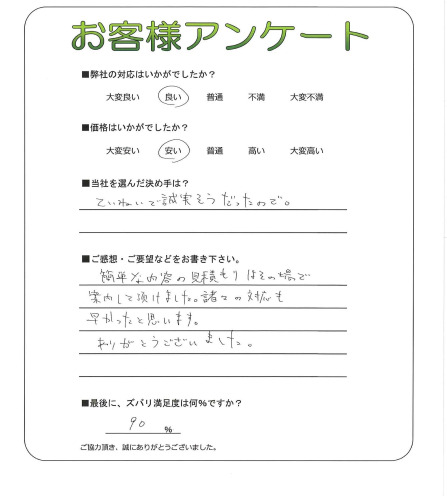 お客様アンケート
■弊社の対応はいかがでしたか？
大変良い 良い 普通 不満 大変不満
■価格はいかがでしたか？
大変安い 安い 普通 高い 大変高い
■当社を選んだ決め手は？
ていねいで誠実そうだったので。
■ご感想・ご要望などをお書き下さい。
簡単な内容の見積もりはその場で
案内して頂けました。諸々の対応も
早かったと思います。
ありがとうございました。
■最後に、ズバリ満足度は何％ですか？
90 ％
ご協力頂き、誠にありがとうございました。